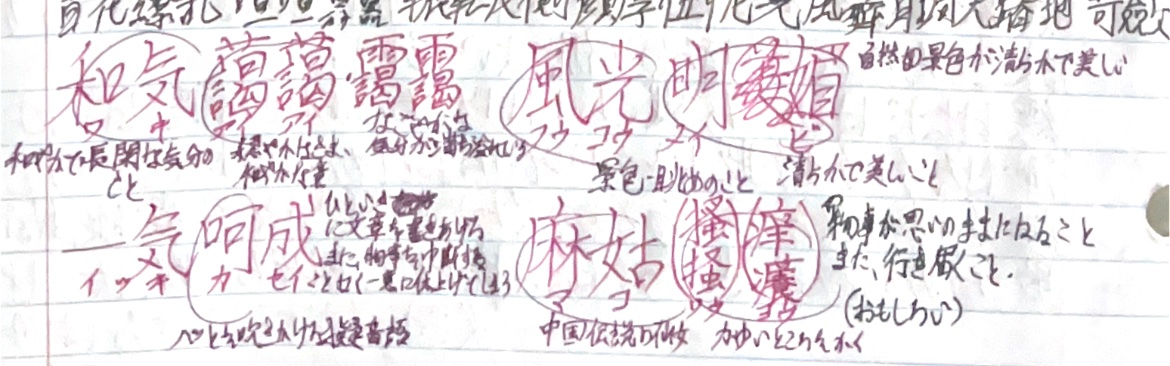 和気藹藹 靄靄
ワ キ アイ アイ
和やかで長閑な気分のこと
穏やかなさま、和やかな意
なごやかな気分が満ち溢れている
風光明媚
フウ コウ メイ ビ
自然の景色が清らかで美しい
景色・眺めのこと
清らかで美しいこと
一気呵成
イッ キ カ セイ
ひといきに文章を書きあげる
また、物事を中断することなく一気に仕上げてしまう
ハッと息を吹きかける擬音語
麻姑掻痒
マ コ ソウ ヨウ
物事が思いのままになること
また、行き届くこと。
(おもしろい)
中国伝説の仙女
かゆいところをかく